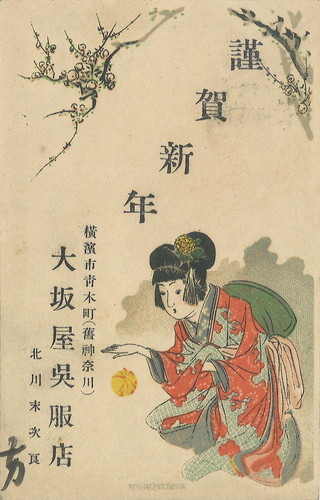 謹賀新年
横濱市青木町(舊神奈川)
大坂屋呉服店
北川末次良